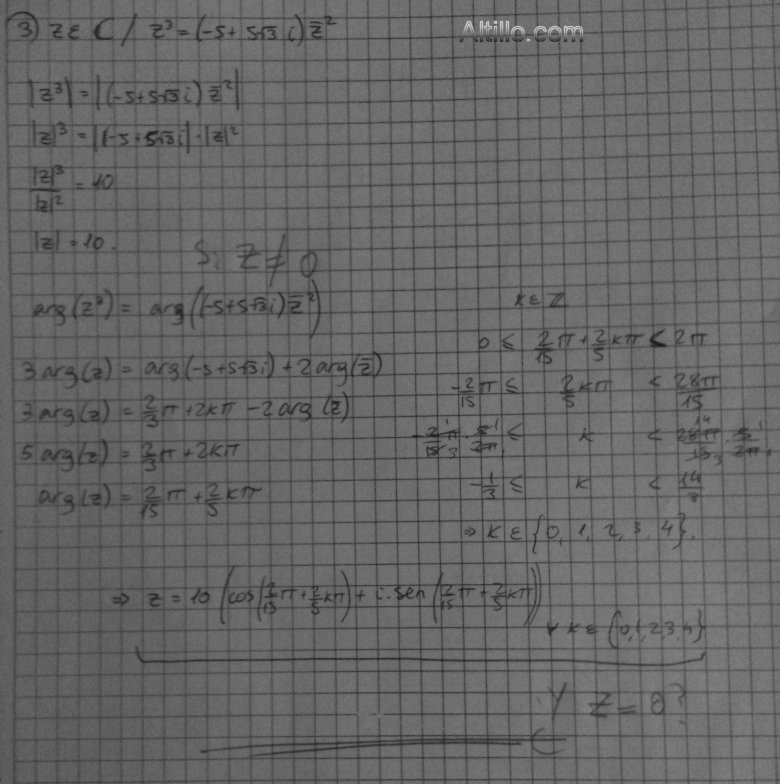 3) z ∈ ℂ / z³ = (-5 + 5√3 i) z̄²
Altillo.com
|z³| = |(-5+5√3 i) z̄²|
|z|³ = |(-5+5√3 i| · |z|²
|z|³/|z|² = 10
|z| = 10.
Si z ≠ 0
arg(z³) = arg((-5+5√3 i) z̄²)
3 arg(z) = arg(-5+5√3 i) + 2 arg(z̄)
3 arg(z) = 2/3 π + 2kπ - 2 arg(z)
5 arg(z) = 2/3 π + 2kπ
arg(z) = 2/15 π + 2/5 kπ
k ∈ ℤ
0 ≤ 2/15 π + 2/5 kπ < 2π
-2/15 π ≤ 2/5 kπ < 28π/15
-2π/15 · 5/2π ≤ k < 28π/15 · 5/2π
-1/3 ≤ k < 14/3
⇒ k ∈ {0, 1, 2, 3, 4}.
⇒ z = 10 (cos(2/15 π + 2/5 kπ) + i . sen (2/15 π + 2/5 kπ))
∀ k ∈ {0,1,2,3,4}
Y z = 0?